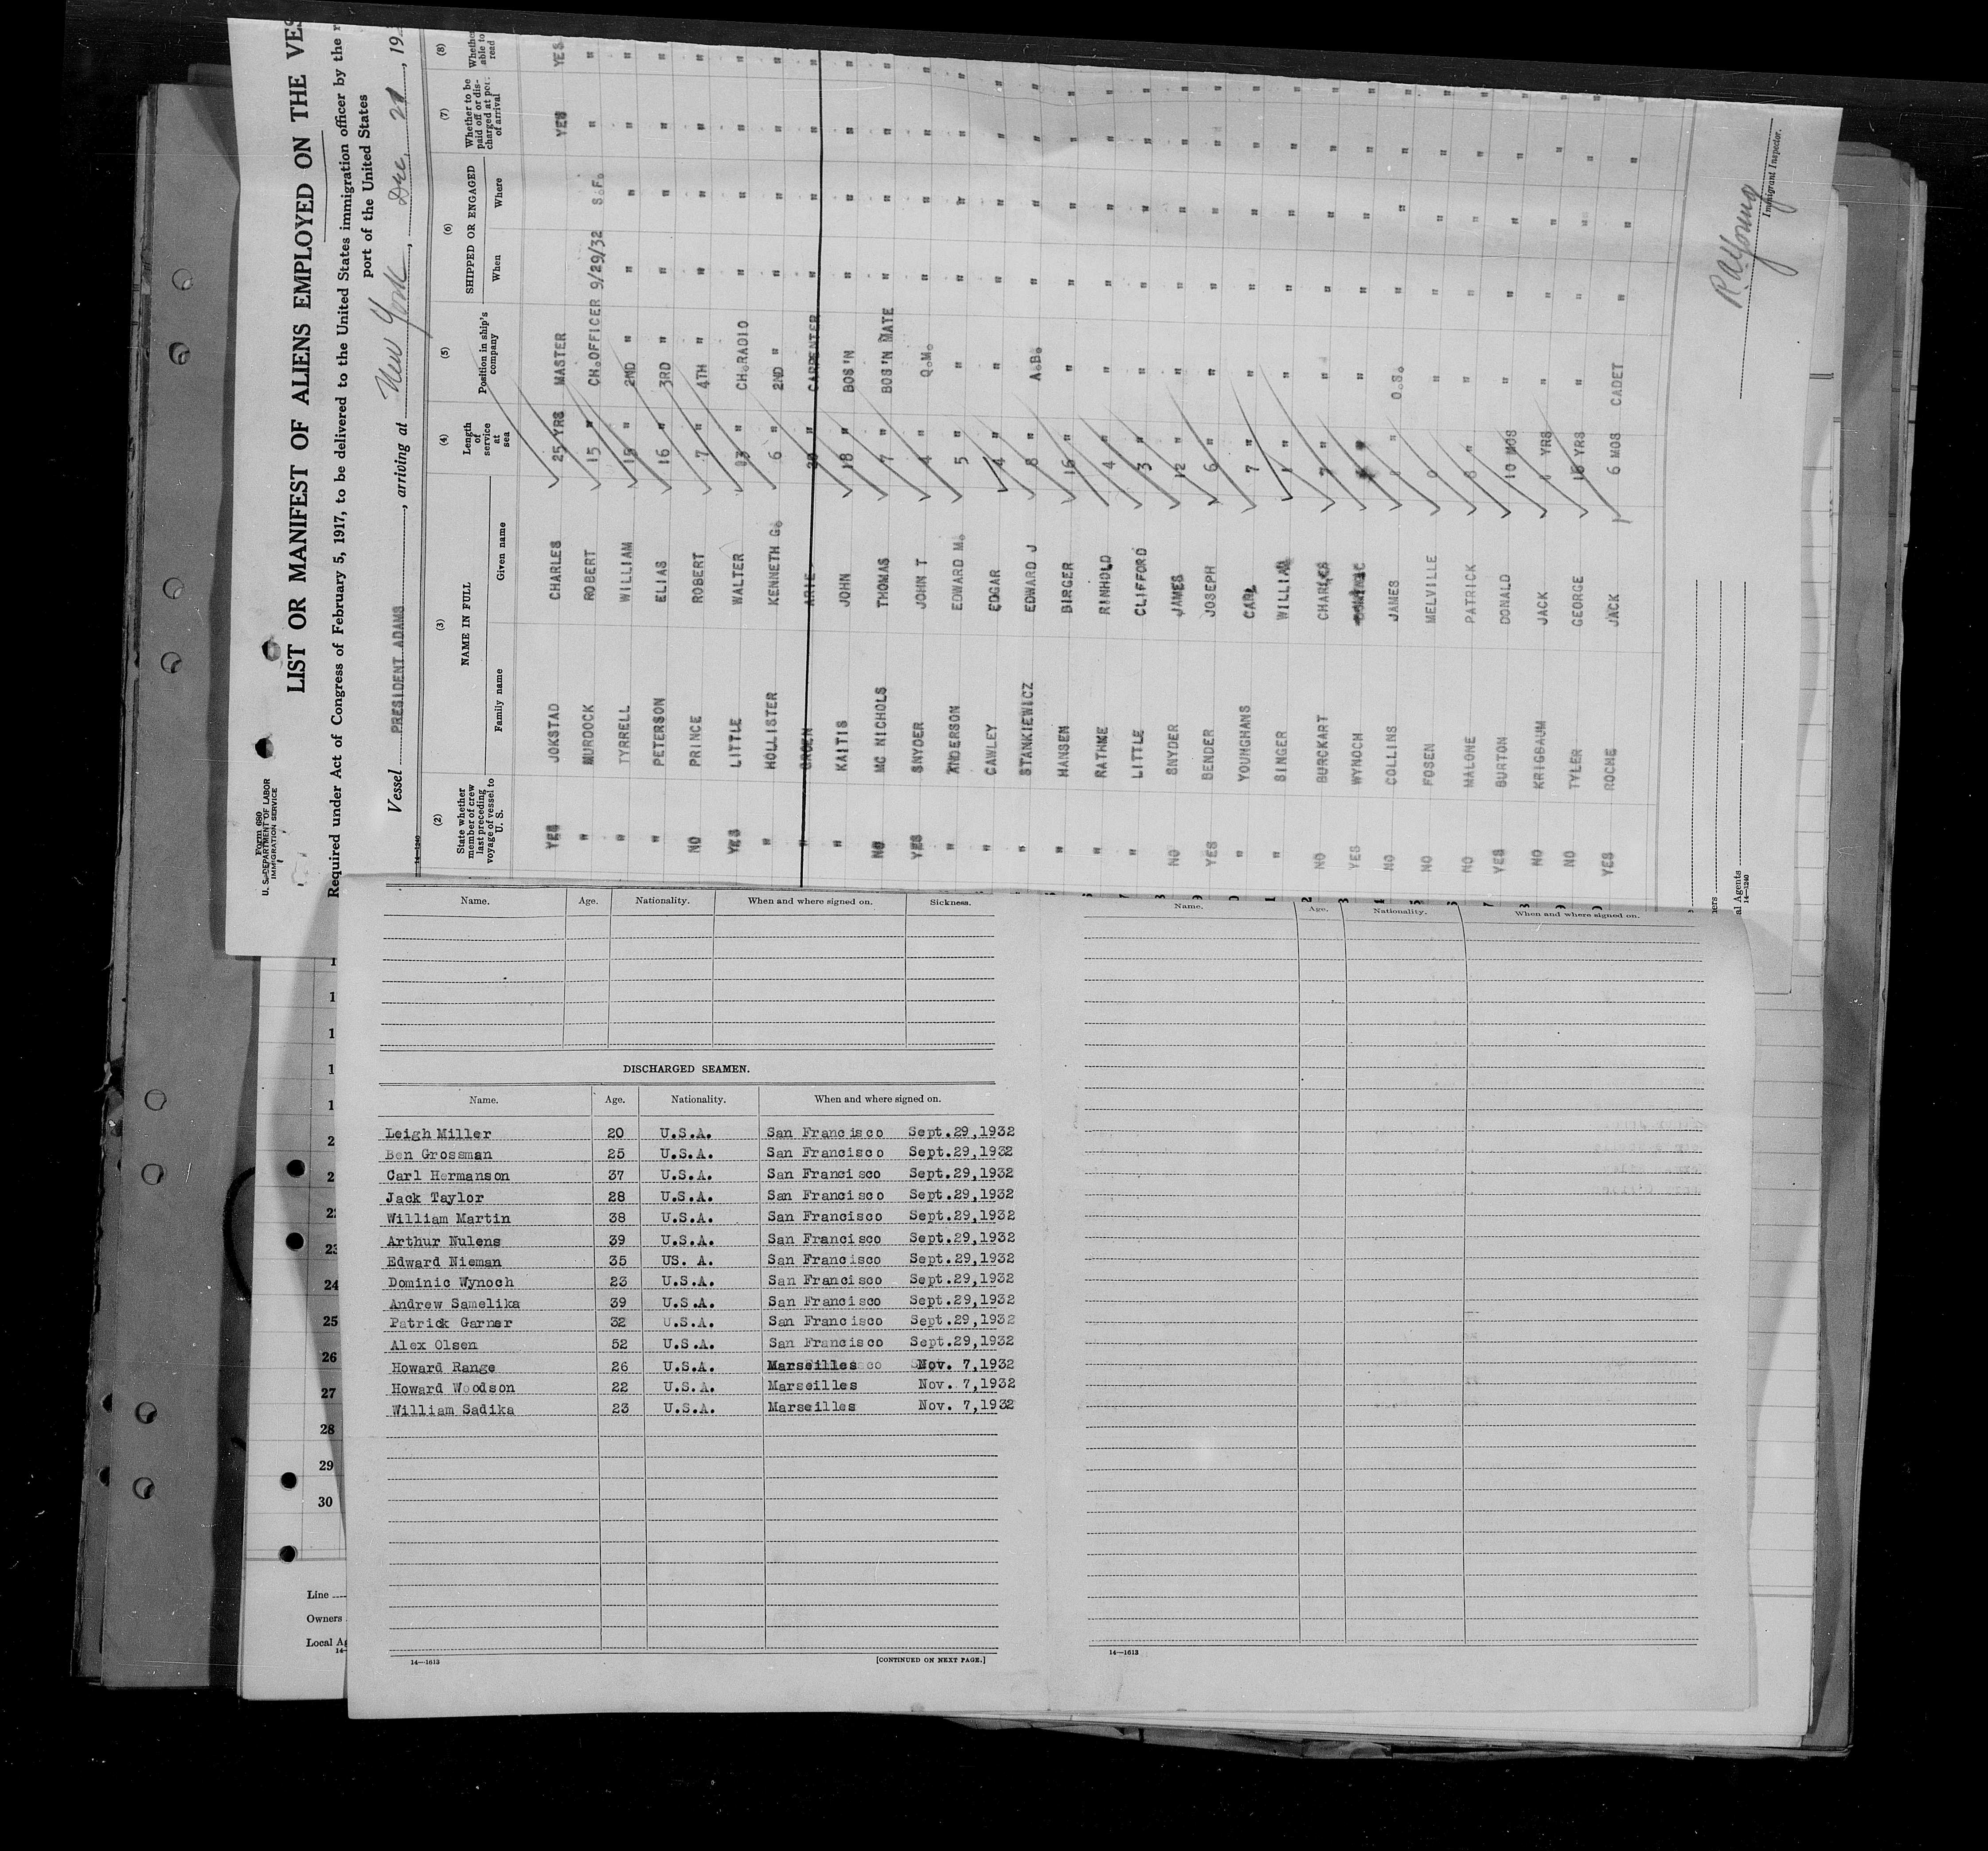 Form 680
U. S. DEPARTMENT OF LABOR
IMMIGRATION SERVICE
LIST OR MANIFEST OF ALIENS EMPLOYED ON THE VES
Required under Act of Congress of February 5, 1917, to be delivered to the United States immigration officer by the r
port of the United States
Vessel PRESIDENT ADAMS, arriving at New York, Dec. 21, 193
14—1240
(2) (3) (4) (5) (6) (7) (8)
State whether member of crew last preceding voyage of vessel to U. S. NAME IN FULL Family name Given name Length of service at sea Position in ship's company SHIPPED OR ENGAGED When Where Whether to be paid off or discharged at port of arrival Whether able to read
YES JOKSTAD CHARLES 25 YRS MASTER YES YES
" MURDOCK ROBERT 15 " CH.OFFICER 9/29/32 S.F. " "
" TYRRELL WILLIAM 15 " 2ND " " " " "
" PETERSON ELIAS 16 " 3RD " " " " "
NO PRINCE ROBERT 7 " 4TH " " " " "
YES LITTLE WALTER 13 " CH.RADIO " " " "
" HOLLISTER KENNETH G. 6 " 2ND " " " " "
" GROEN ARIE 20 " CARPENTER " " " "
" KAITIS JOHN 18 " BOS'N " " " "
NO MC NICHOLS THOMAS 7 " BOS'N MATE " " " "
YES SNYDER JOHN T 4 " Q.M. " " " "
" ANDERSON EDWARD M. 5 " " " " " "
" CAWLEY EDGAR 4 " " " " " "
" STANKIEWICZ EDWARD J 8 " A.B. " " " "
" HANSEN BIRGER 16 " " " " " "
" RATHME RINHOLD 4 " " " " " "
" LITTLE CLIFFORD 3 " " " " " "
NO SNYDER JAMES 12 " " " " " "
YES BENDER JOSEPH 6 " " " " " "
" YOUNGHANS CARL 7 " " " " " "
" SINGER WILLIAM 1 " " " " " "
NO BURCKART CHARLES 7 " " " " " "
YES WYNOCH " " " " "
NO COLLINS JAMES " O.S. " " " "
NO FOSEN MELVILLE " " " " "
NO MALONE PATRICK " " " " " "
YES BURTON DONALD 10 MOS " " " " "
NO KRIGBAUM JACK YRS " " " " "
NO TYLER GEORGE 15 YRS " " " " "
YES ROCHE JACK 6 MOS CADET " " " "
Immigrant Inspector.
al Agents
14—1240
Name. Age. Nationality. When and where signed on. Sickness.
DISCHARGED SEAMEN.
Name. Age. Nationality. When and where signed on.
Leigh Miller 20 U.S.A. San Francisco Sept.29,1932
Ben Grossman 25 U.S.A. San Francisco Sept.29,1932
Carl Hermanson 37 U.S.A. San Francisco Sept.29,1932
Jack Taylor 28 U.S.A. San Francisco Sept.29,1932
William Martin 38 U.S.A. San Francisco Sept.29,1932
Arthur Nulens 39 U.S.A. San Francisco Sept.29,1932
Edward Nieman 35 US. A. San Francisco Sept.29,1932
Dominic Wynoch 23 U.S.A. San Francisco Sept.29,1932
Andrew Samelika 39 U.S.A. San Francisco Sept.29,1932
Patrick Garner 32 U.S.A. San Francisco Sept.29,1932
Alex Olsen 52 U.S.A. San Francisco Sept.29,1932
Howard Range 26 U.S.A. Marseilles Nov. 7,1932
Howard Woodson 22 U.S.A. Marseilles Nov. 7,1932
William Sadika 23 U.S.A. Marseilles Nov. 7,1932
14—1613 [CONTINUED ON NEXT PAGE.]
Name. Age. Nationality. When and where signed on.
14—1613
23
24
25
26
27
28
29
30
Line
Owners
Local Ag
14—